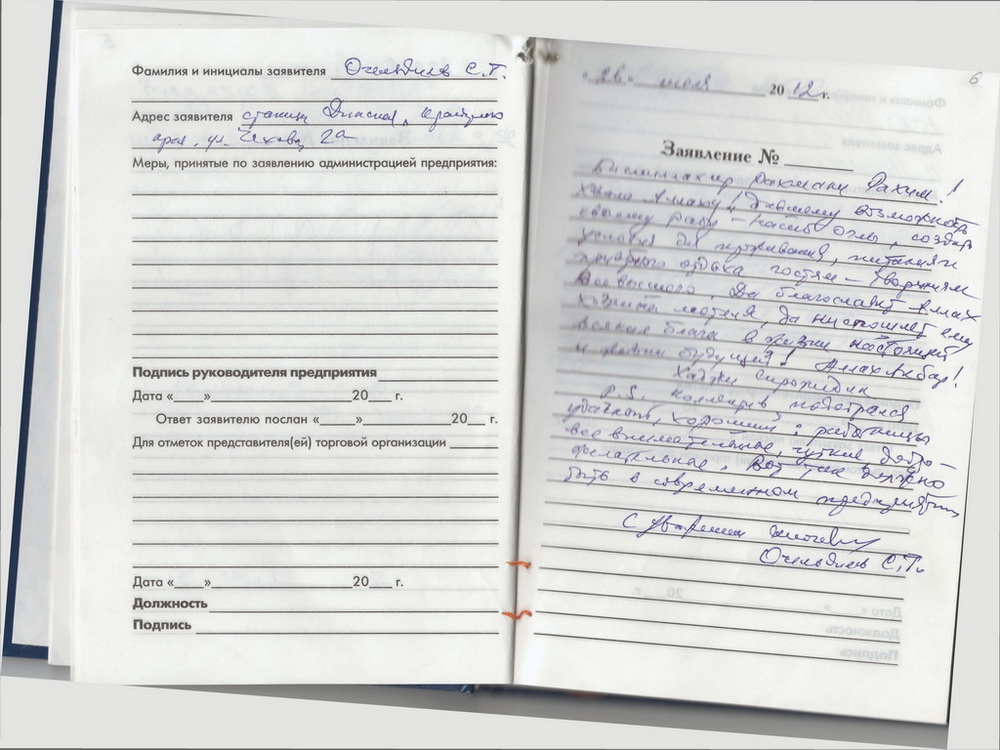 5
Фамилия и инициалы заявителя Очельдиев С.Т.
Адрес заявителя станица Динская, Краснодарс
края, ул. Чехова, 2а
Меры, принятые по заявлению администрацией предприятия:
Подпись руководителя предприятия
Дата «___» 20___ г.
Ответ заявителю послан «___» 20___ г.
Для отметок представителя(ей) торговой организации
Дата «___» 20___ г.
Должность
Подпись
6
« 26 » июля 2012 г.
Заявление №
Бисмиллахир Рахмани Рахим!
Хвала Аллаху, давшему возможность
своему рабу – Насиб оглы, создать
условия для проживания, питания и
отдыха гостям – творениям
Всевышнего. Да благославит Аллах
хозяина мотеля, да ниспошлет ему
всякие блага в жизни настоящей
и в жизни будущей! Аллах Акбар!
Хаджи Сиражидин
P.S. Коллектив подобрался
удачный, хороший: работницы
все внимательные, чуткие добро-
желательные. Вот так должно
быть в современном предприятии
С уважением
Очельдиев С.Т.